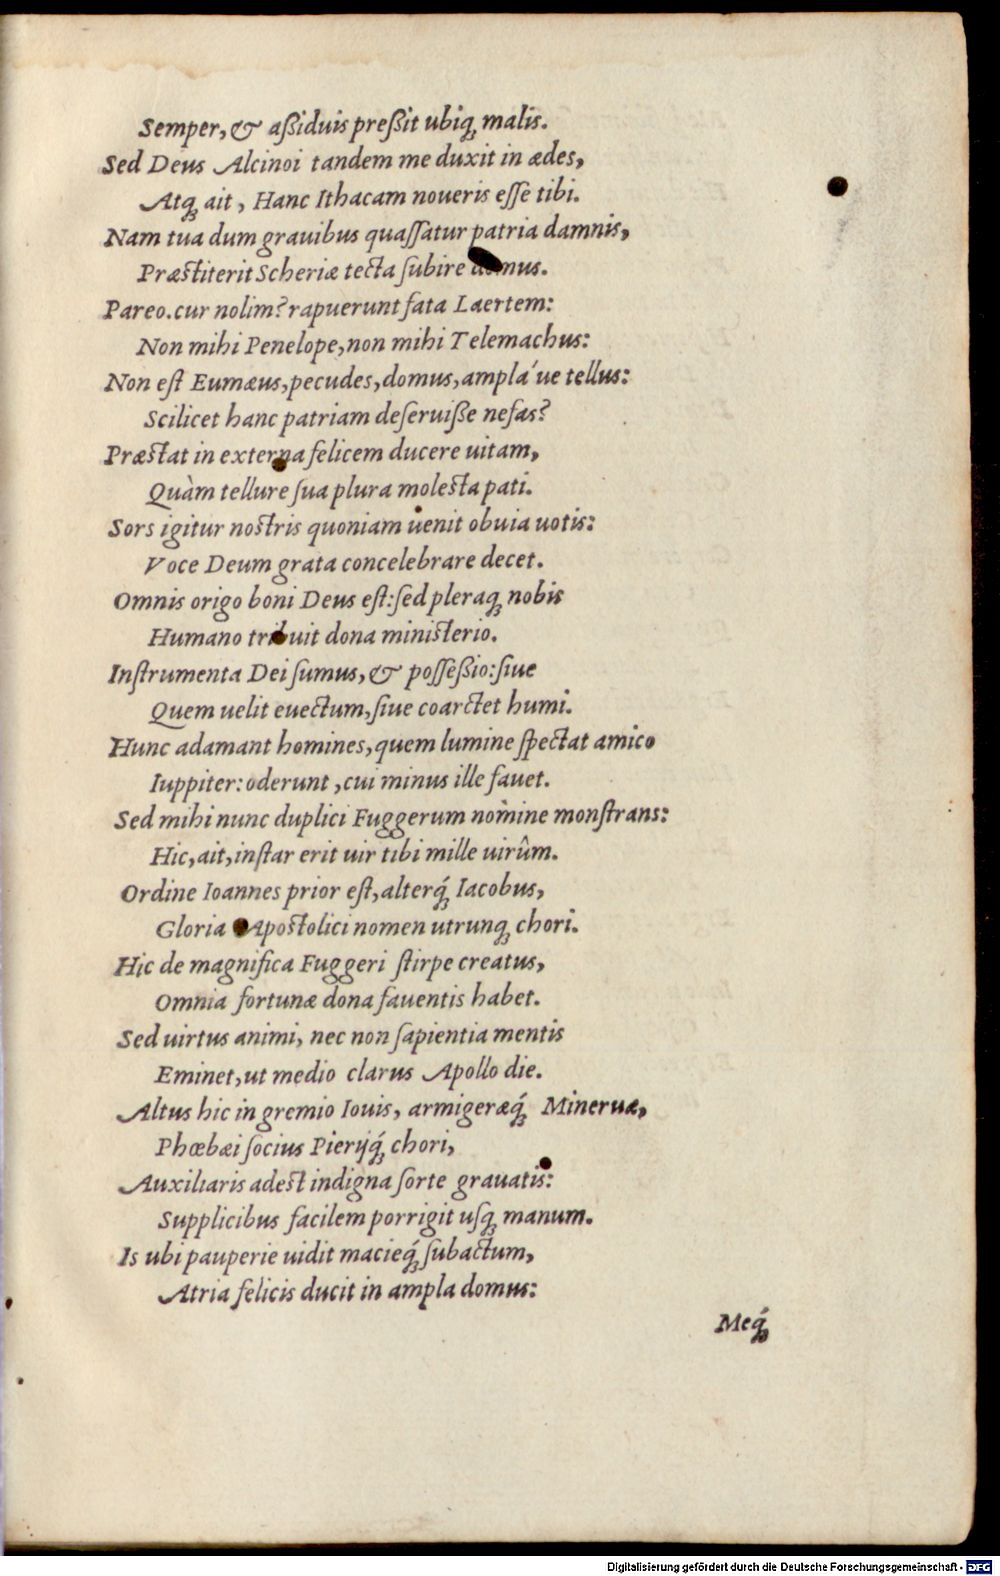 Semper, & aßiduis preßit ubiq; malis.
Sed Deus Alcinoi tandem me duxit in ædes,
Atq; ait, Hanc Ithacam noueris esse tibi.
Nam tua dum grauibus quassatur patria damnis,
Præstiterit Scheriæ tecta subire domus.
Pareo. cur nolim? rapuerunt fata Laertem:
Non mihi Penelope, non mihi Telemachus:
Non est Eumæus, pecudes, domus, ampla´ue tellus:
Scilicet hanc patriam deseruiße nefas?
Præstat in externa felicem ducere uitam,
Quàm tellure sua plura molesta pati.
Sors igitur nostris quoniam uenit obuia uotis:
Voce Deum grata concelebrare decet.
Omnis origo boni Deus est: sed pleraq; nobis
Humano tribuit dona ministerio.
Instrumenta Dei sumus, & posseßio: siue
Quem uelit euectum, siue coarctet humi.
Hunc adamant homines, quem lumine spectat amico
Iuppiter: oderunt, cui minus ille fauet.
Sed mihi nunc duplici Fuggerum nomine monstrans:
Hic, ait, instar erit uir tibi mille uirûm.
Ordine Ioannes prior est, alterq́; Iacobus,
Gloria Apostolici nomen utrunq; chori.
Hic de magnifica Fuggeri stirpe creatus,
Omnia fortunæ dona fauentis habet.
Sed uirtus animi, nec non sapientia mentis
Eminet, ut medio clarus Apollo die.
Altus hic in gremio Iouis, armigeræq́; Mineruæ,
Phœbæi socius Pierijq́; chori,
Auxiliaris adest indigna sorte grauatis:
Supplicibus facilem porrigit usq; manum.
Is ubi pauperie uidit macieq́; subactum,
Atria felicis ducit in ampla domus:
Meq́;
Digitalisierung gefördert durch die Deutsche Forschungsgemeinschaft - DFG